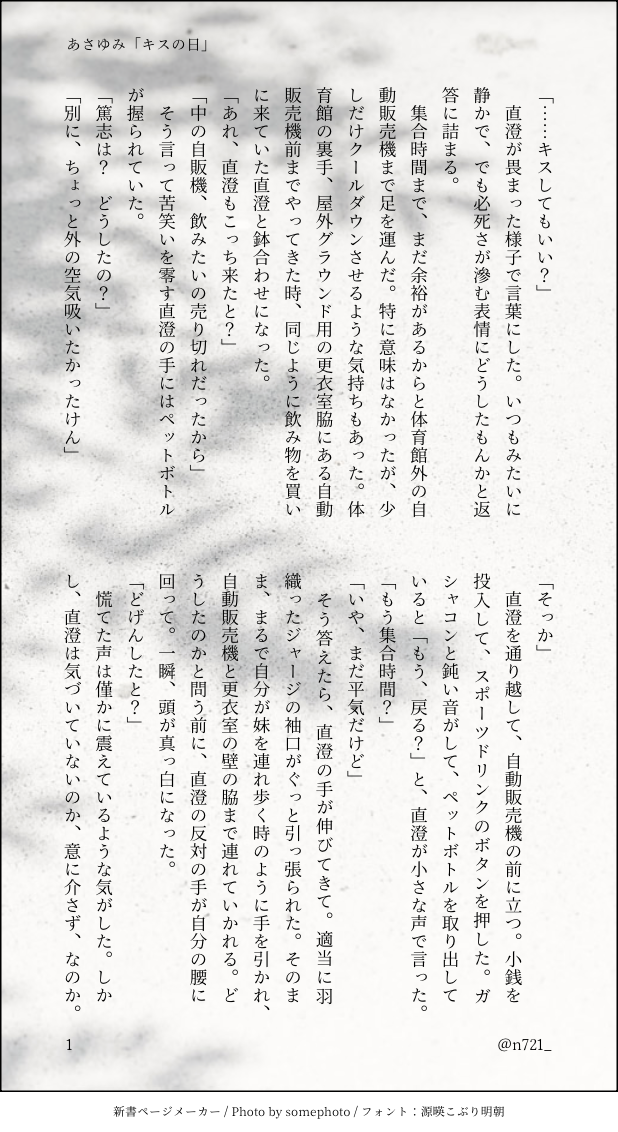 あさゆみ「キスの日」
「……キスしてもいい？」
　直澄が畏まった様子で言葉にした。いつもみたいに
静かで、でも必死さが滲む表情にどうしたもんかと返
答に詰まる。
　集合時間まで、まだ余裕があるからと体育館外の自
動販売機まで足を運んだ。特に意味はなかったが、少
しだけクールダウンさせるような気持ちもあった。体
育館の裏手、屋外グラウンド用の更衣室脇にある自動
販売機前までやってきた時、同じように飲み物を買い
に来ていた直澄と鉢合わせになった。
「あれ、直澄もこっち来たと？」
「中の自販機、飲みたいの売り切れだったから」
　そう言って苦笑いを零す直澄の手にはペットボトル
が握られていた。
「篤志は？　どうしたの？」
「別に、ちょっと外の空気吸いたかったけん」
「そっか」
　直澄を通り越して、自動販売機の前に立つ。小銭を
投入して、スポーツドリンクのボタンを押した。ガ
シャコンと鈍い音がして、ペットボトルを取り出して
いると「もう、戻る？」と、直澄が小さな声で言った。
「もう集合時間？」
「いや、まだ平気だけど」
　そう答えたら、直澄の手が伸びてきて。適当に羽
織ったジャージの袖口がぐっと引っ張られた。そのま
ま、まるで自分が妹を連れ歩く時のように手を引かれ、
自動販売機と更衣室の壁の脇まで連れていかれる。ど
うしたのかと問う前に、直澄の反対の手が自分の腰に
回って。一瞬、頭が真っ白になった。
「どげんしたと？」
　慌てた声は僅かに震えているような気がした。しか
し、直澄は気づいていないのか、意に介さず、なのか。
1
@n721_
新書ページメーカー / Photo by somephoto / フォント：源暎こぶり明朝